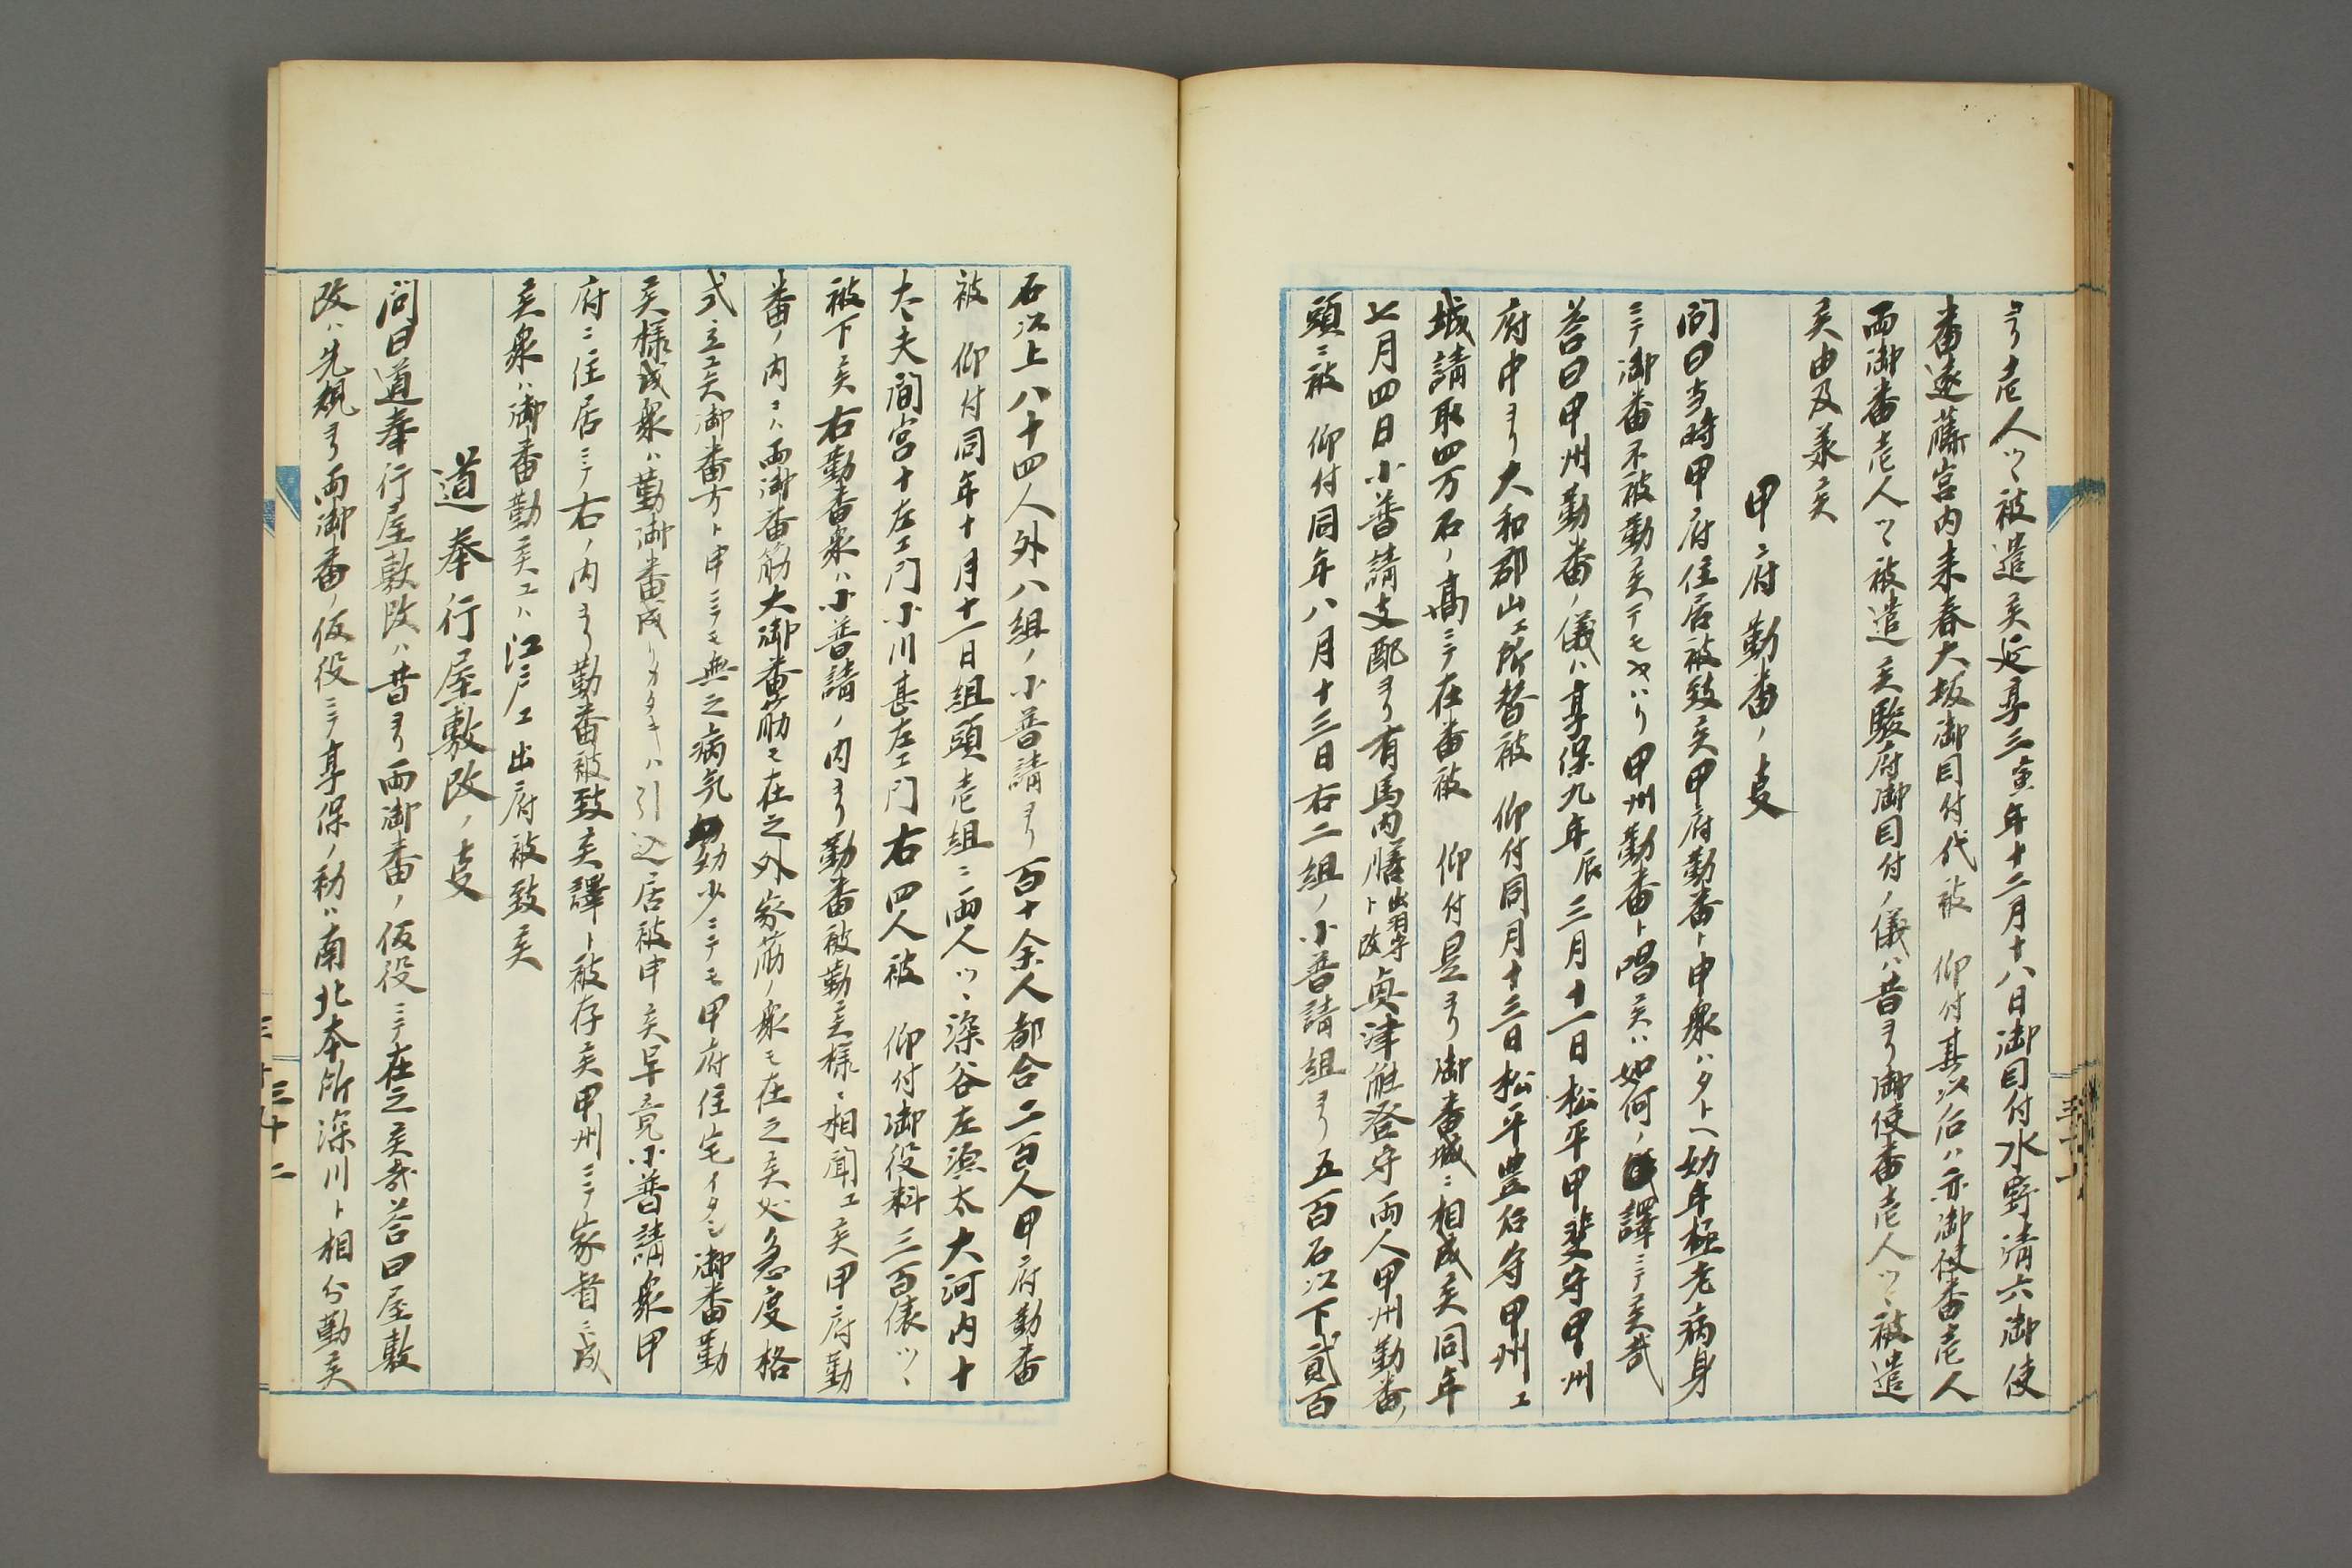 ヨリ壱人ツヽ被遣候延享三寅年十二月十八日御目付水野清六御使
番遠藤宮内来春大坂御目付代被　仰付其以后ハ亦御使番壱人
両御番壱人ツヽ被遣候駿府御目付ノ儀ハ昔ヨリ御使番壱人ツヽ被遣
候由及承候
甲府勤番ノ事
問曰当時甲府住居被致候甲府勤番ト申衆ハタトヘ幼年極老病身
ニテ御番不被勤候テモヤハリ甲州勤番ト唱候ハ如何ノ訳ニテ候哉
答曰甲州勤番ノ儀ハ享保九年辰三月十一日松平甲斐守甲州
府中ヨリ大和郡山エ所替被　仰付同月十三日松平豊后守甲州エ
城請取四万石ノ高ニテ在番被　仰付是ヨリ御番城ニ相成候同年
七月四日小普請支配ヨリ有馬内膳出羽守ト改奥津能登守両人甲州勤番ノ
頭ニ被　仰付同年八月十三日右二組ノ小普請組ヨリ五百石以下貳百
石以上八十四人外八組ノ小普請ヨリ百十余人都合二百人甲府勤番
被　仰付同年十月十一日組頭壱組ニ両人ツヽ深谷左源太大河内十
太夫間宮十左エ門小川甚左エ門右四人被　仰付御役料三百俵ツヽ
被下候右勤番衆ハ小普請ノ内ヨリ勤番被勤候様ニ相聞エ候甲府勤
番ノ内ニハ両御番筋大御番筋モ在之外家筋ノ衆モ在之候処急度格
式立エ候御番方ト申ニテモ無之病気幼少ニテモ甲府住宅イタシ御番勤
候様成衆ハ勤御番成リカタキハ引込居被申候畢竟小普請衆甲
府ニ住居ニテ右ノ内ヨリ勤番被致候譯ト被存候甲州ニテ家督ニ成
候衆ハ御番勤候エハ江戸エ出府被致候
道奉行屋敷改ノ事
問曰道奉行屋敷改ハ昔ヨリ両御番ノ仮役ニテ在之候哉答曰屋敷
改ハ先規ヨリ両御番ノ仮役ニテ享保ノ初ハ南北本所深川ト相分勤候
三十二